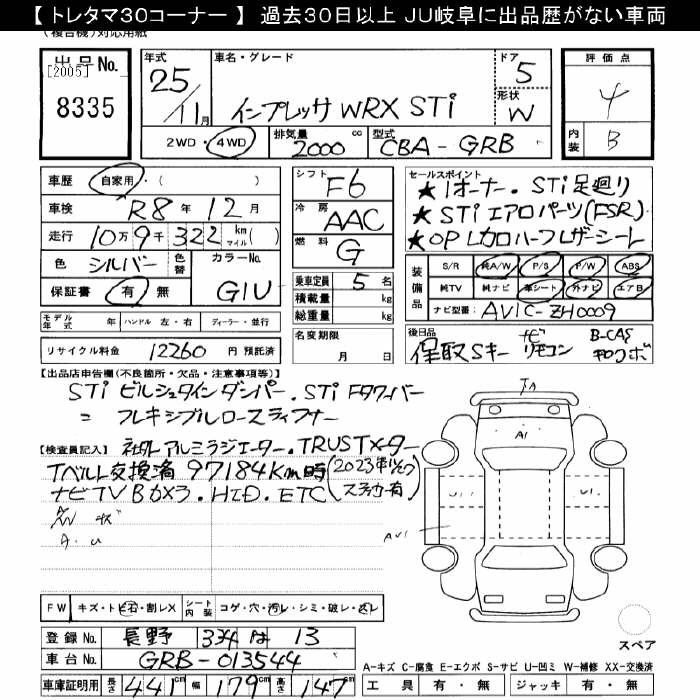 【 トレタマ30コーナー 】 過去30日以上 JU岐阜に出品歴がない車両
(複合機)対応用紙
出品No. [2005] 8335
年式 25/11月
車名・グレード インプレッサ WRX STi
ドア 5
形状 W
2WD・4WD
排気量 2000 cc
型式 CBA-GRB
評価点 4
内装 B
車歴 自家用・( )
車検 R8年 12月
走行 10万 9千 322 km マイル( )
色 シルバー 色替 カラーNo. G1U
保証書 有・無
シフト F6
冷房 AAC
燃料 G
乗車定員 5名
積載量 kg
総重量 kg
名変期限 月 日
セールスポイント
★1オーナー.STi足廻り
★STiエアロパーツ(FSR)
★OPレカロハーフレザーシート
装備品 S/R 純A/W P/S P/W ABS
純TV 純ナビ 革シート 外ナビ エアB
ナビ型番: AVIC-ZH0009
モデル年式 年 ハンドル 左・右 ディーラー・並行
リサイクル料金 12260 円 預託済
後日品 保取Sキー ナビリモコン B-CAS
【出品店申告欄(不良箇所・欠品・注意事項等)】
STi ビルシュタインダンパー.STi Fタワーバー
= フレキシブルロースティフナー
【検査員記入】 社外アルミラジエーター.TRUSTメーター
Tベルト交換済 97184km時(2023年
ナビTVBカメラ.HID.ETC ステッカー有)
A.U
A1
U1
U1
AU1
FW キズ・トビ石・割レX シート内装 コゲ・穴・汚レ・シミ・破レ・スレ
スペア
登録No. 長野 334 は 13
車台No. GRB-013544
A-キズ C-腐食 E-エクボ S-サビ U-凹ミ W-補修 XX-交換済
車庫証明用 長さ 441cm 幅 179cm 高さ 147cm
工具 有・無 ジャッキ 有・無